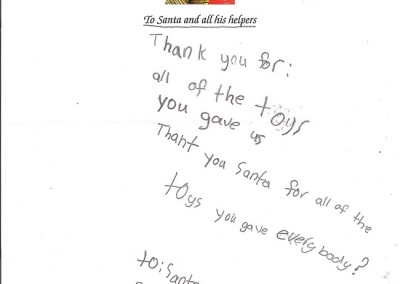 To Santa and all his helpers
Thank you for:
all of the toys
you gave us
Thant you Santa for all of the
toys you gave everybody?
to: Santa